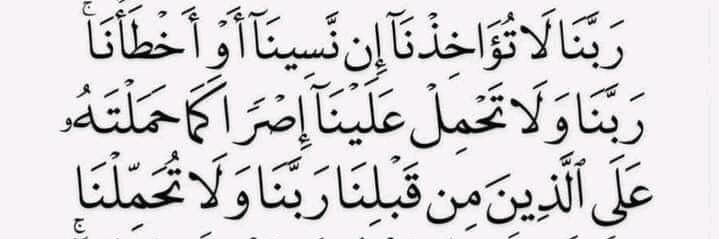 رَبَّنَا لَا تُؤَاخِذْنَآ إِن نَّسِينَآ أَوْ أَخْطَأْنَا ۚ
رَبَّنَا وَلَا تَحْمِلْ عَلَيْنَآ إِصْرًا كَمَا حَمَلْتَهُۥ
عَلَى ٱلَّذِينَ مِن قَبْلِنَا رَبَّنَا وَلَا تُحَمِّلْنَا